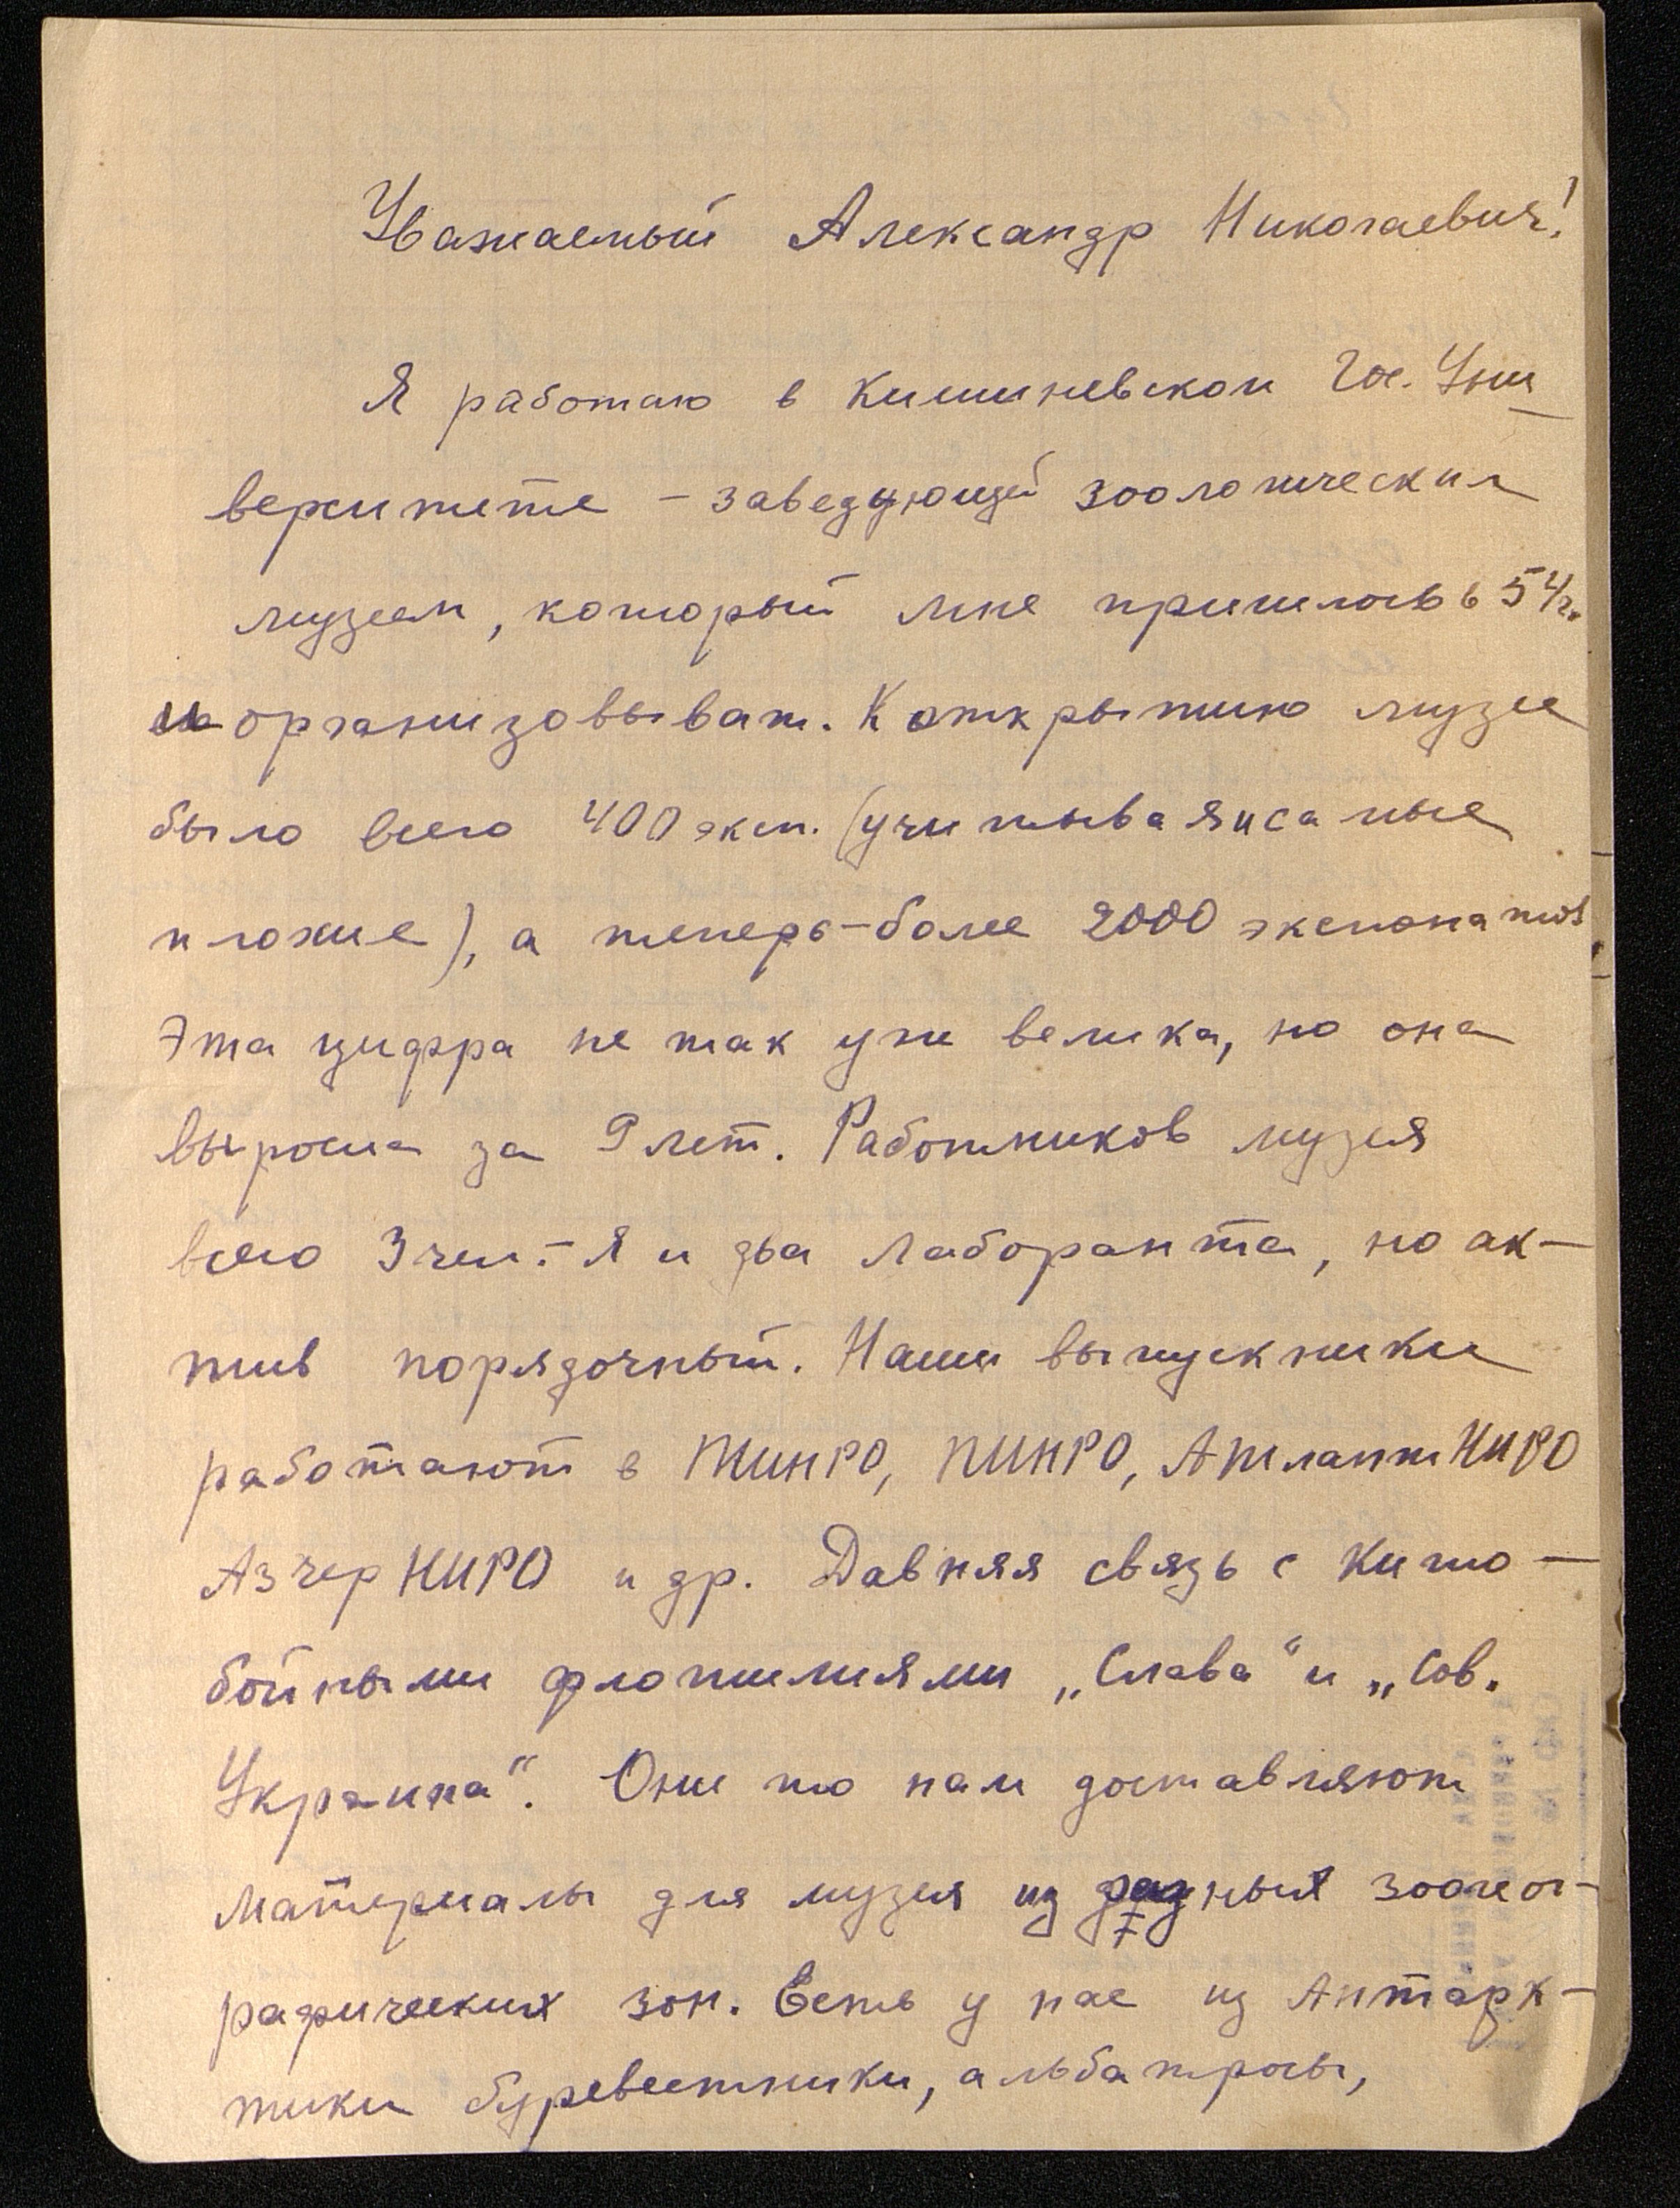 Уважаемый Александр Николаевич!
Я работаю в Кишиневском Гос. Уни
верситете – заведующей зоологическим
музеем, который мне пришлось в 54г.
и организовывать. К открытию музея
было всего 400 эксп. (учитывая и самые
плохие), а теперь – более 2000 экспонатов
Эта цифра не так уж велика, но она
выросла за 9 лет. Работников музея
всего 3 чел. – Я и два лаборанта, но ак-
тив порядочный. Наши выпускники
работают в ТИНРО, ПИНРО, АтлантНИРО
АзчерНИРО и др. Давняя связь с кито-
бойными флотилиями „Слава“ и „Сов.
Украина“. Они то нам доставляют
материалы для музея из разных зоогеог-
рафических зон. Есть у нас из Антарк-
тики буревестники, альбатросы,